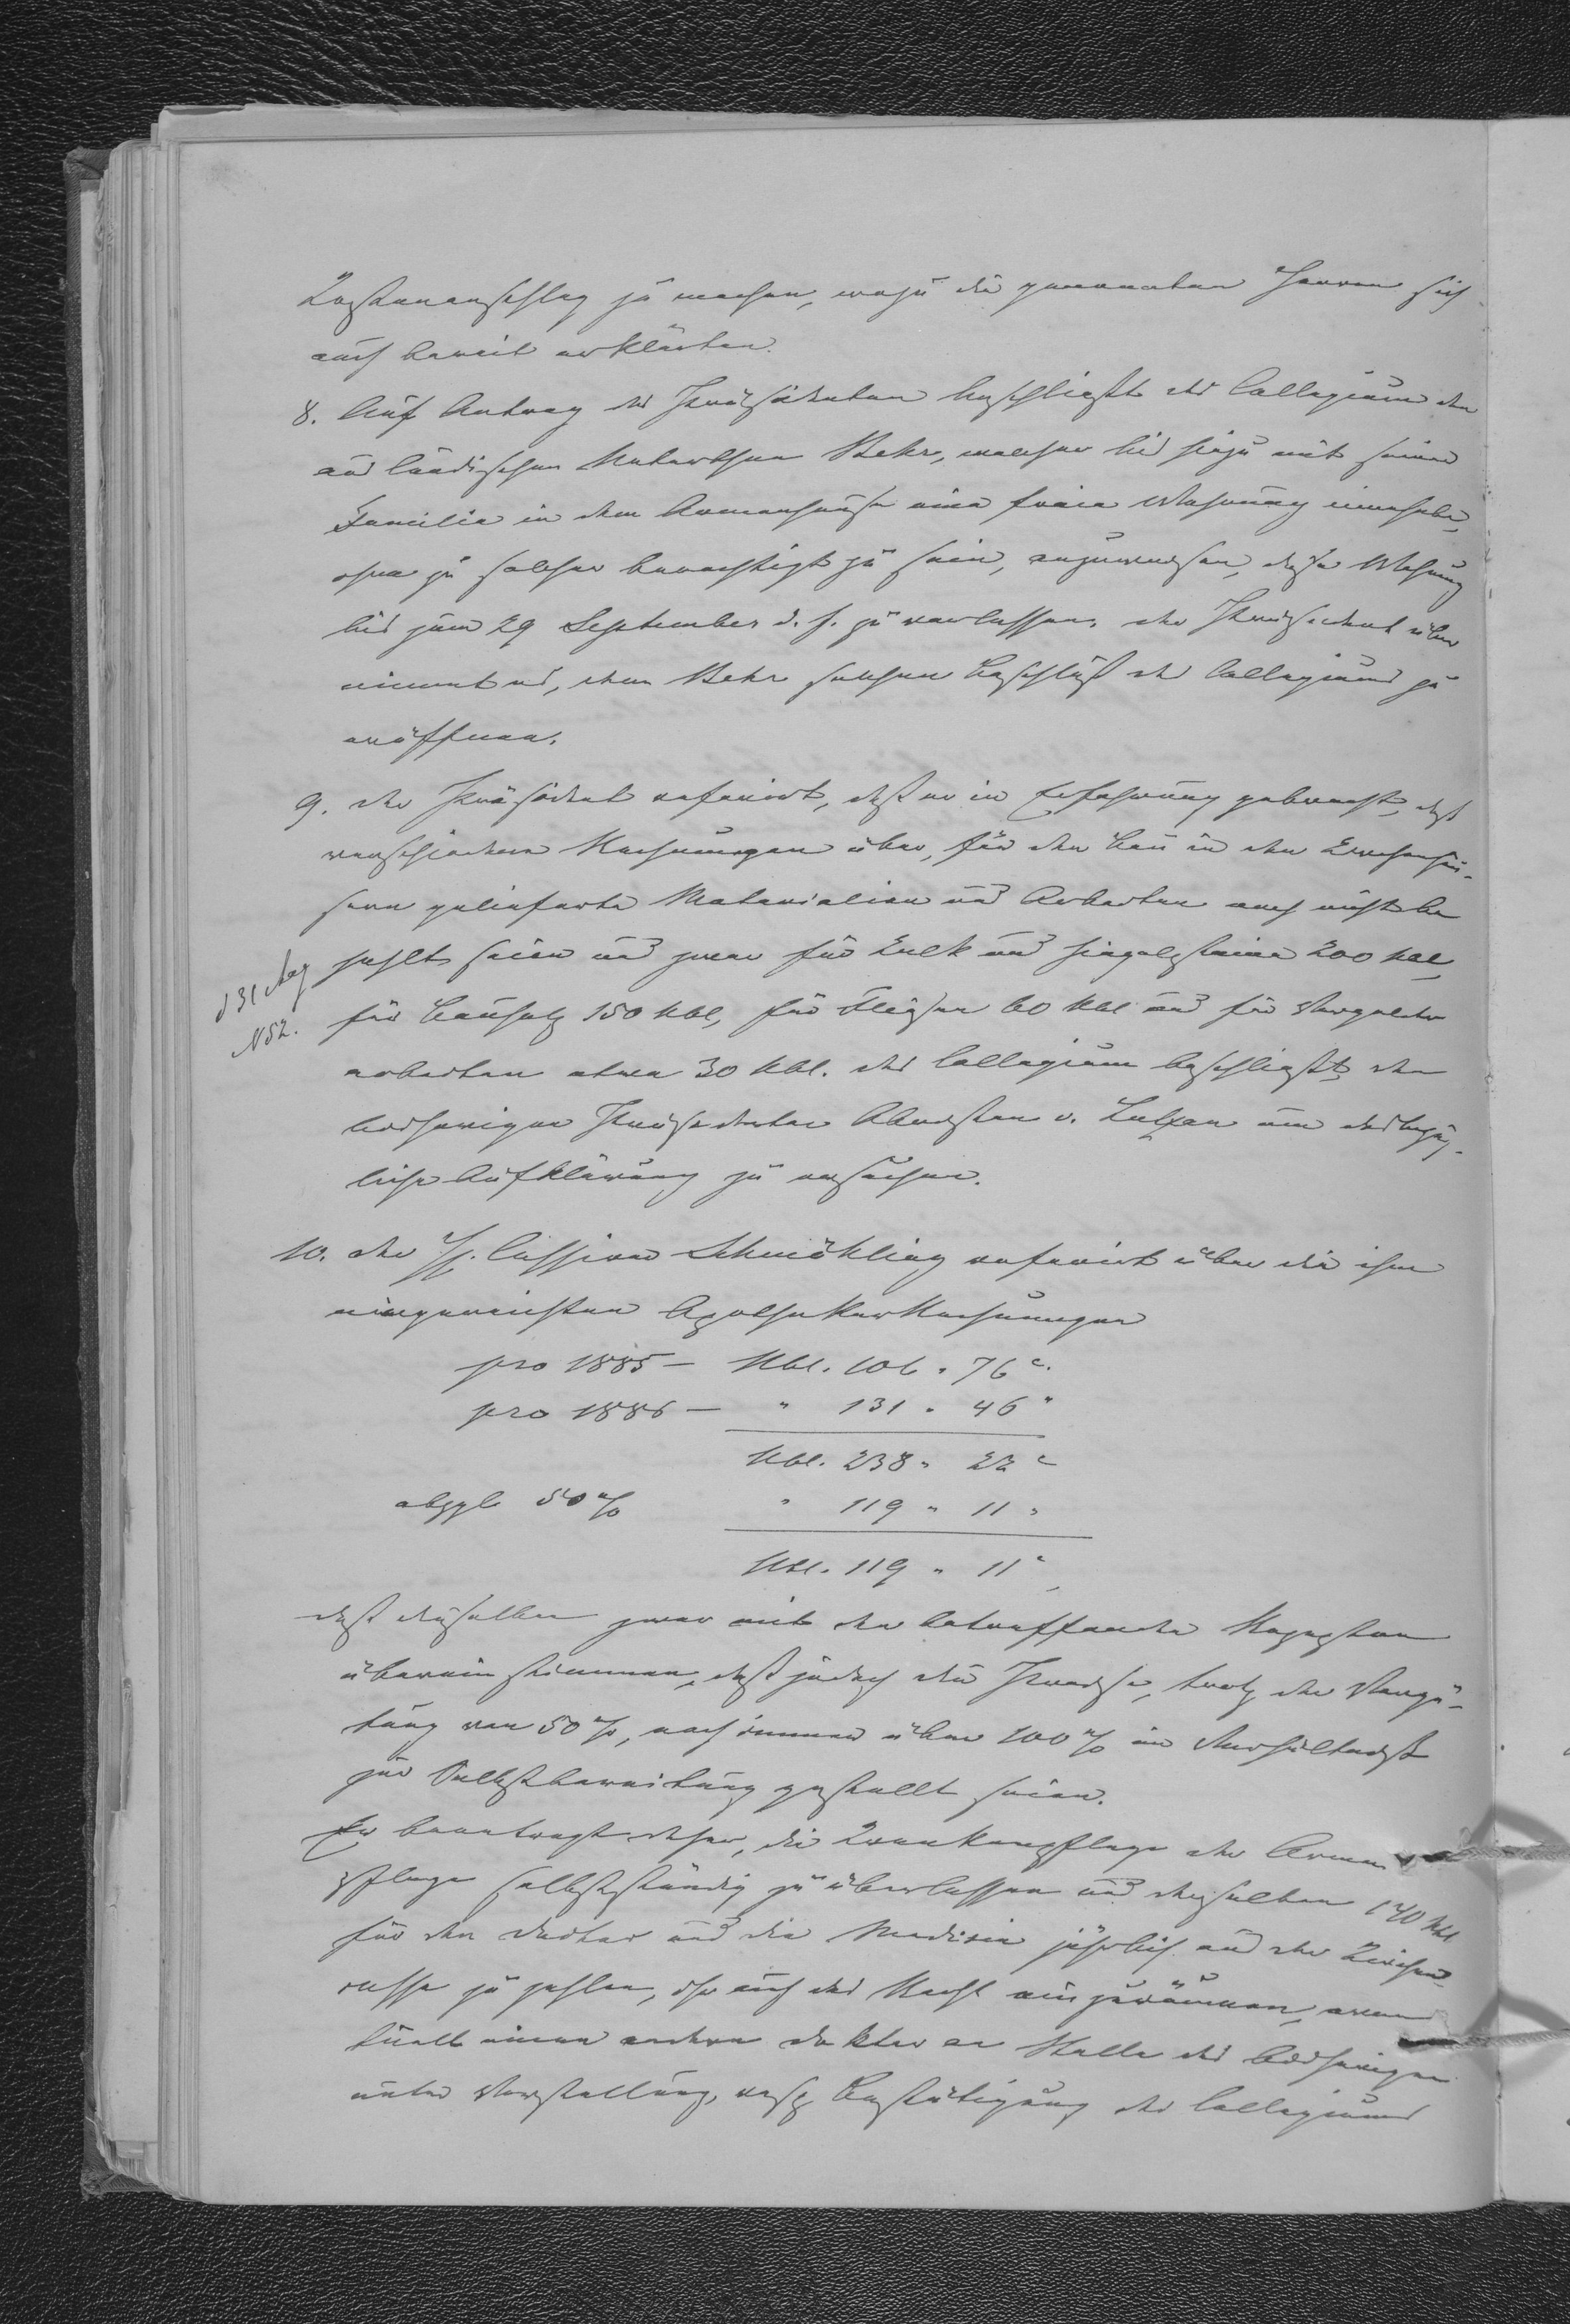 Kostenanschlag zu machen, wozu die genannten Herren sich
auch bereit erklärten.
8. Auf Antrag des Präsidenten beschließt das Collegium den
ausländischen Unterthan Behr, welcher bis hiezu mit seiner
Familie in dem Armenhause eine freie Wohnung innehabe,
ohne zu solcher berechtigt zu sein, anzuweisen, diese Wohnung
bis zum 29 September d. J. zu verlassen. Der Präsident über
nimmt es, dem Behr solchen Beschluß des Collegiums zu
eröffnen.
9. Der Präsident referirt, daß er in Erfahrung gebracht, daß
verschiedene Rechnungen über, für den Bau in den Kirchenhäu-
sern gelieferte Materialien und Arbeiten noch nicht be
zahlt seien und zwar für Kalk und Ziegelsteine 200 Rbl,
d 31 Aug
N 52.
für Bauholz 150 Rbl, für Fliesen 60 Rbl und für Vergolder
arbeiten etwa 30 Rbl. Das Collegium beschließt, den
bisherigen Präsidenten um diesbezüg-
liche Aufklärung zu ersuchen.
10. Der H. Cassirer Schmöhling referirt über die ihm
eingereichten Apothekerrechnungen
pro 1885 — Rbl. 106 . 76 c.
pro 1886 — " 131 . 46 "
Rbl. 238 " 22 c
abzgl 50 % " 119 " 11 "
Rbl. 119 " 11 c,
daß dieselben zwar mit den betreffenden Rezepten
übereinstimmen, daß jedoch die Preise, trotz der Vergü-
tung von 50 %, noch immer über 100 % im Verhältniß
zur Selbstbereitung gestellt seien.
Er beantragt daher, die Krankenpflege der Armen
pflege selbstständig zu überlassen und derselben 140 Rbl
für den Doctor und die Medicin jährlich aus der Kirchen-
casse zu zahlen, ihr auch das Recht einzuräumen, even
tuell einen andern Doktor an Stelle des bisherigen
unter Vorstellung, resp. Bestätigung des Collegiums